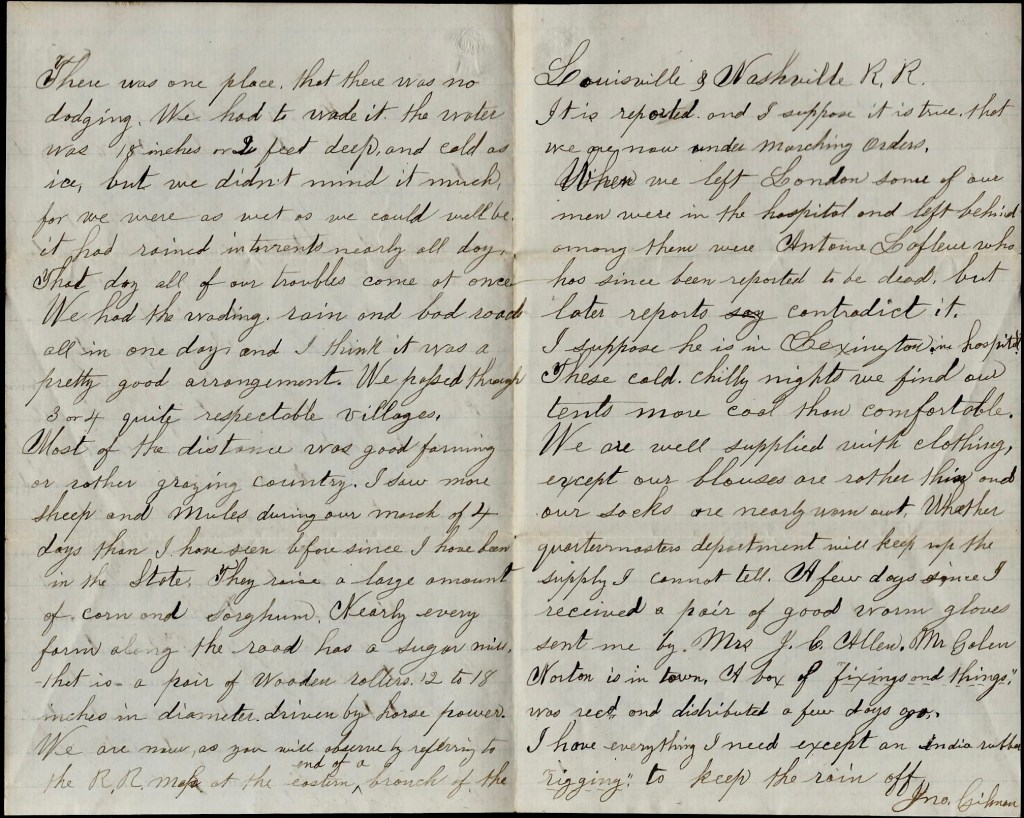 There was one place, that there was no
dodging. We had to wade it. the water
was 18 inches or 2 feet deep, and cold as
ice, but we didn't mind it much,
for we were as wet as we could well be.
it had rained in torrents nearly all day.
That day all of our troubles come at once
We had the wading. rain and bad roads
all in one day and I think it was a
pretty good arrangement. We passed through
3 or 4 quite respectable villages.
Most of the distance was good farming
or rather grazing country. I saw more
sheep and Mules during our march of 4
days than I have seen before since I have been
in the State. They raise a large amount
of corn and Sorghum. Nearly every
farm along the road has a sugar mill,
-that is- a pair of Wooden rollers. 12 to 18
inches in diameter. driven by horse power.
We are now, as you will observe by referring to
the R. R. Map at the eastern end of a branch of the
Louisville & Nashville R. R.
It is reported. and I suppose it is true. that
we are now under marching orders.
When we left London some of our
men were in the hospital and left behind
among them were Antoine Lafleur who
has since been reported to be dead, but
later reports say contradict it.
I suppose he is in Lexington in hospital.
These cold. chilly nights we find our
tents more cool than comfortable.
We are well supplied with clothing,
except our blouses are rather thin and
our socks are nearly worn out. Whether
quartermasters department will keep up the
supply I cannot tell. A few days since I
received a pair of good warm gloves
sent me by Mrs J. C. Allen. Mr
Norton is in town. A box of "fixings and things",
was recd and distributed a few days ago.
I have everything I need except an India rubber
"rigging" to keep the rain off.
Jno. Gilman